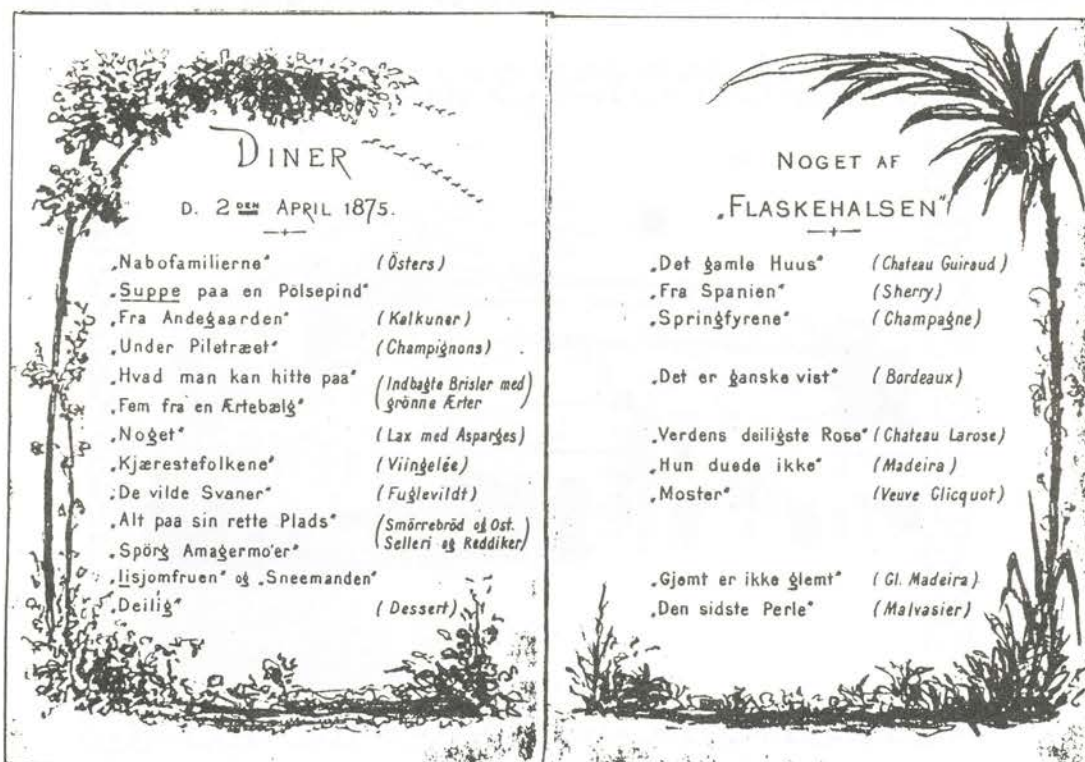 DINER
D. 2DEN APRIL 1875.
„Nabofamilierne“ (Östers)
„Suppe paa en Pölsepind“
„Fra Andegaarden“ (Kalkuner)
„Under Piletræet“ (Champignons)
„Hvad man kan hitte paa“ (Indbagte Brisler med
„Fem fra en Ærtebælg“ grönne Ærter)
„Noget“ (Lax med Asparges)
„Kjærestefolkene“ (Viingelée)
„De vilde Svaner“ (Fuglevildt)
„Alt paa sin rette Plads“ (Smörrebröd og Ost.
„Spörg Amagermo'er“ Selleri og Reddiker)
„Iisjomfruen“ og „Sneemanden“
„Deilig“ (Dessert)
NOGET AF
„FLASKEHALSEN“
„Det gamle Huus“ (Chateau Guiraud)
„Fra Spanien“ (Sherry)
„Springfyrene“ (Champagne)
„Det er ganske vist“ (Bordeaux)
„Verdens deiligste Rose“ (Chateau Larose)
„Hun duede ikke“ (Madeira)
„Moster“ (Veuve Clicquot)
„Gjemt er ikke glemt“ (Gl. Madeira)
„Den sidste Perle“ (Malvasier)